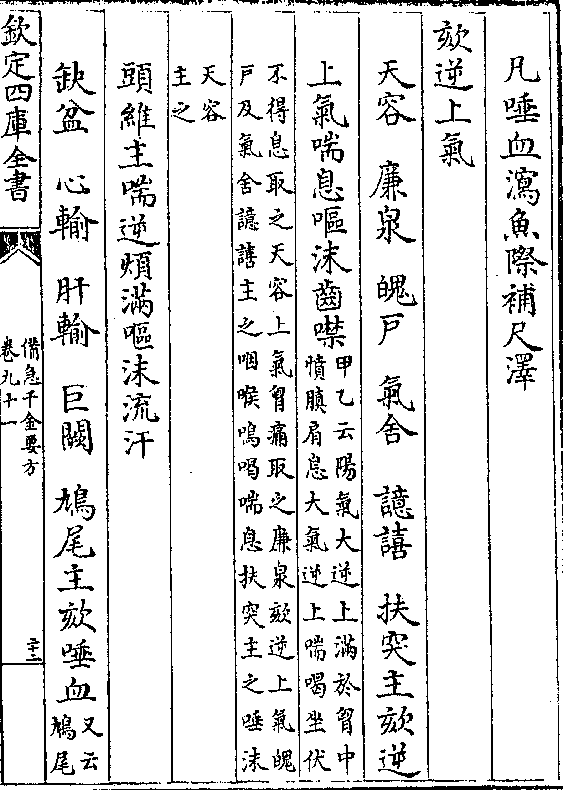 凡唾血瀉魚際補尺澤
欬逆上氣
天容　廉泉　魄戸　氣舍　譩譆　扶突主欬逆
上氣喘息嘔沫齒噤甲乙云陽氣大逆上滿於胷中
憤䐜肩息大氣逆上喘喝坐伏
不得息取之天容上氣胷痛取之廉泉欬逆上氣魄
戸及氣舍譩譆主之咽喉鳴喝喘息扶突主之唾沫
天容
主之
頭維主喘逆煩滿嘔沫流汗
缺盆　心輸　肝輸　巨闕　鳩尾主欬唾血又云
鳩尾
欽定四庫全書
備急千金要方
卷九十一
二十二